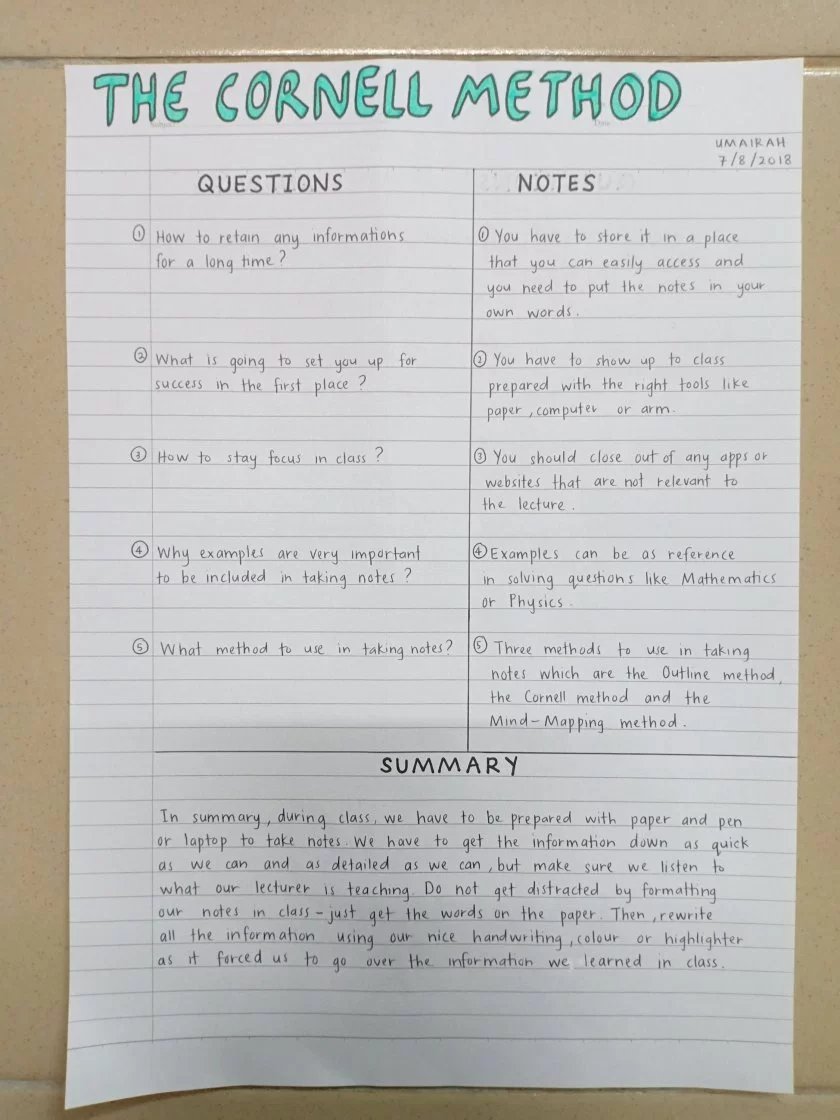 THE CORNELL METHOD
UMAIRAH
7/8/2018
QUESTIONS
① How to retain any informations
for a long time?
② What is going to set you up for
success in the first place?
③ How to stay focus in class?
④ Why examples are very important
to be included in taking notes?
⑤ What method to use in taking notes?
NOTES
① You have to store it in a place
that you can easily access and
you need to put the notes in your
own words.
② You have to show up to class
prepared with the right tools like
paper, computer or arm.
③ You should close out of any apps or
websites that are not relevant to
the lecture.
④ Examples can be as reference
in solving questions like Mathematics
or Physics.
⑤ Three methods to use in taking
notes which are the Outline method,
the Cornell method and the
Mind-Mapping method.
SUMMARY
In summary, during class, we have to be prepared with paper and pen
or laptop to take notes. We have to get the information down as quick
as we can and as detailed as we can, but make sure we listen to
what our lecturer is teaching. Do not get distracted by formatting
our notes in class - just get the words on the paper. Then, rewrite
all the information using our nice handwriting, colour or highlighter
as it forced us to go over the information we learned in class.